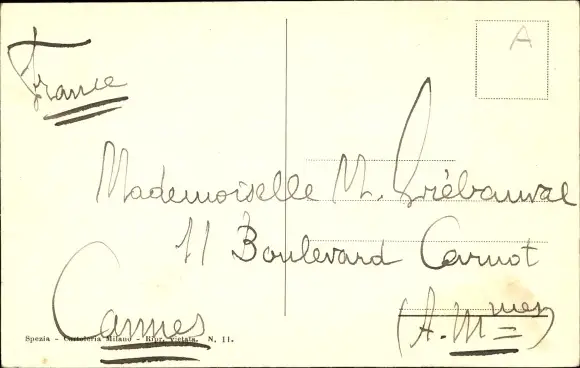 A
France
Mademoiselle M. Griébauval
11 Boulevard Carnot
Cannes
(A. Mmes)
Spezia - Cartoleria Milano - Ripr. vietata. N. 11.